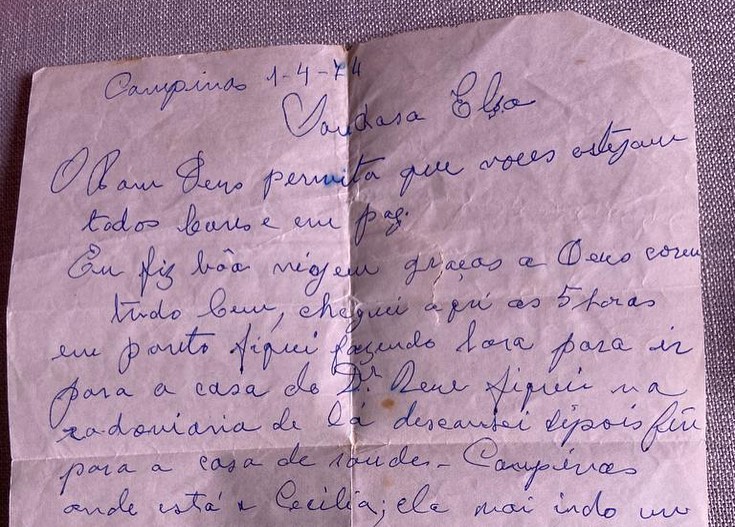 Campinas 1-4-74
Saudosa Elza
O Bom Deus permita que voces estejam
todos bons e em paz.
Eu fiz bôa viajem graças a Deus correu
tudo bem, cheguei aqui as 5 horas
em ponto fiquei fazendo hora para ir
para a casa do Dr Rene fiquei na
rodoviaria de lá descansei depois fui
para a casa de saude - Campinas
onde está a Cecilia; ela vai indo um